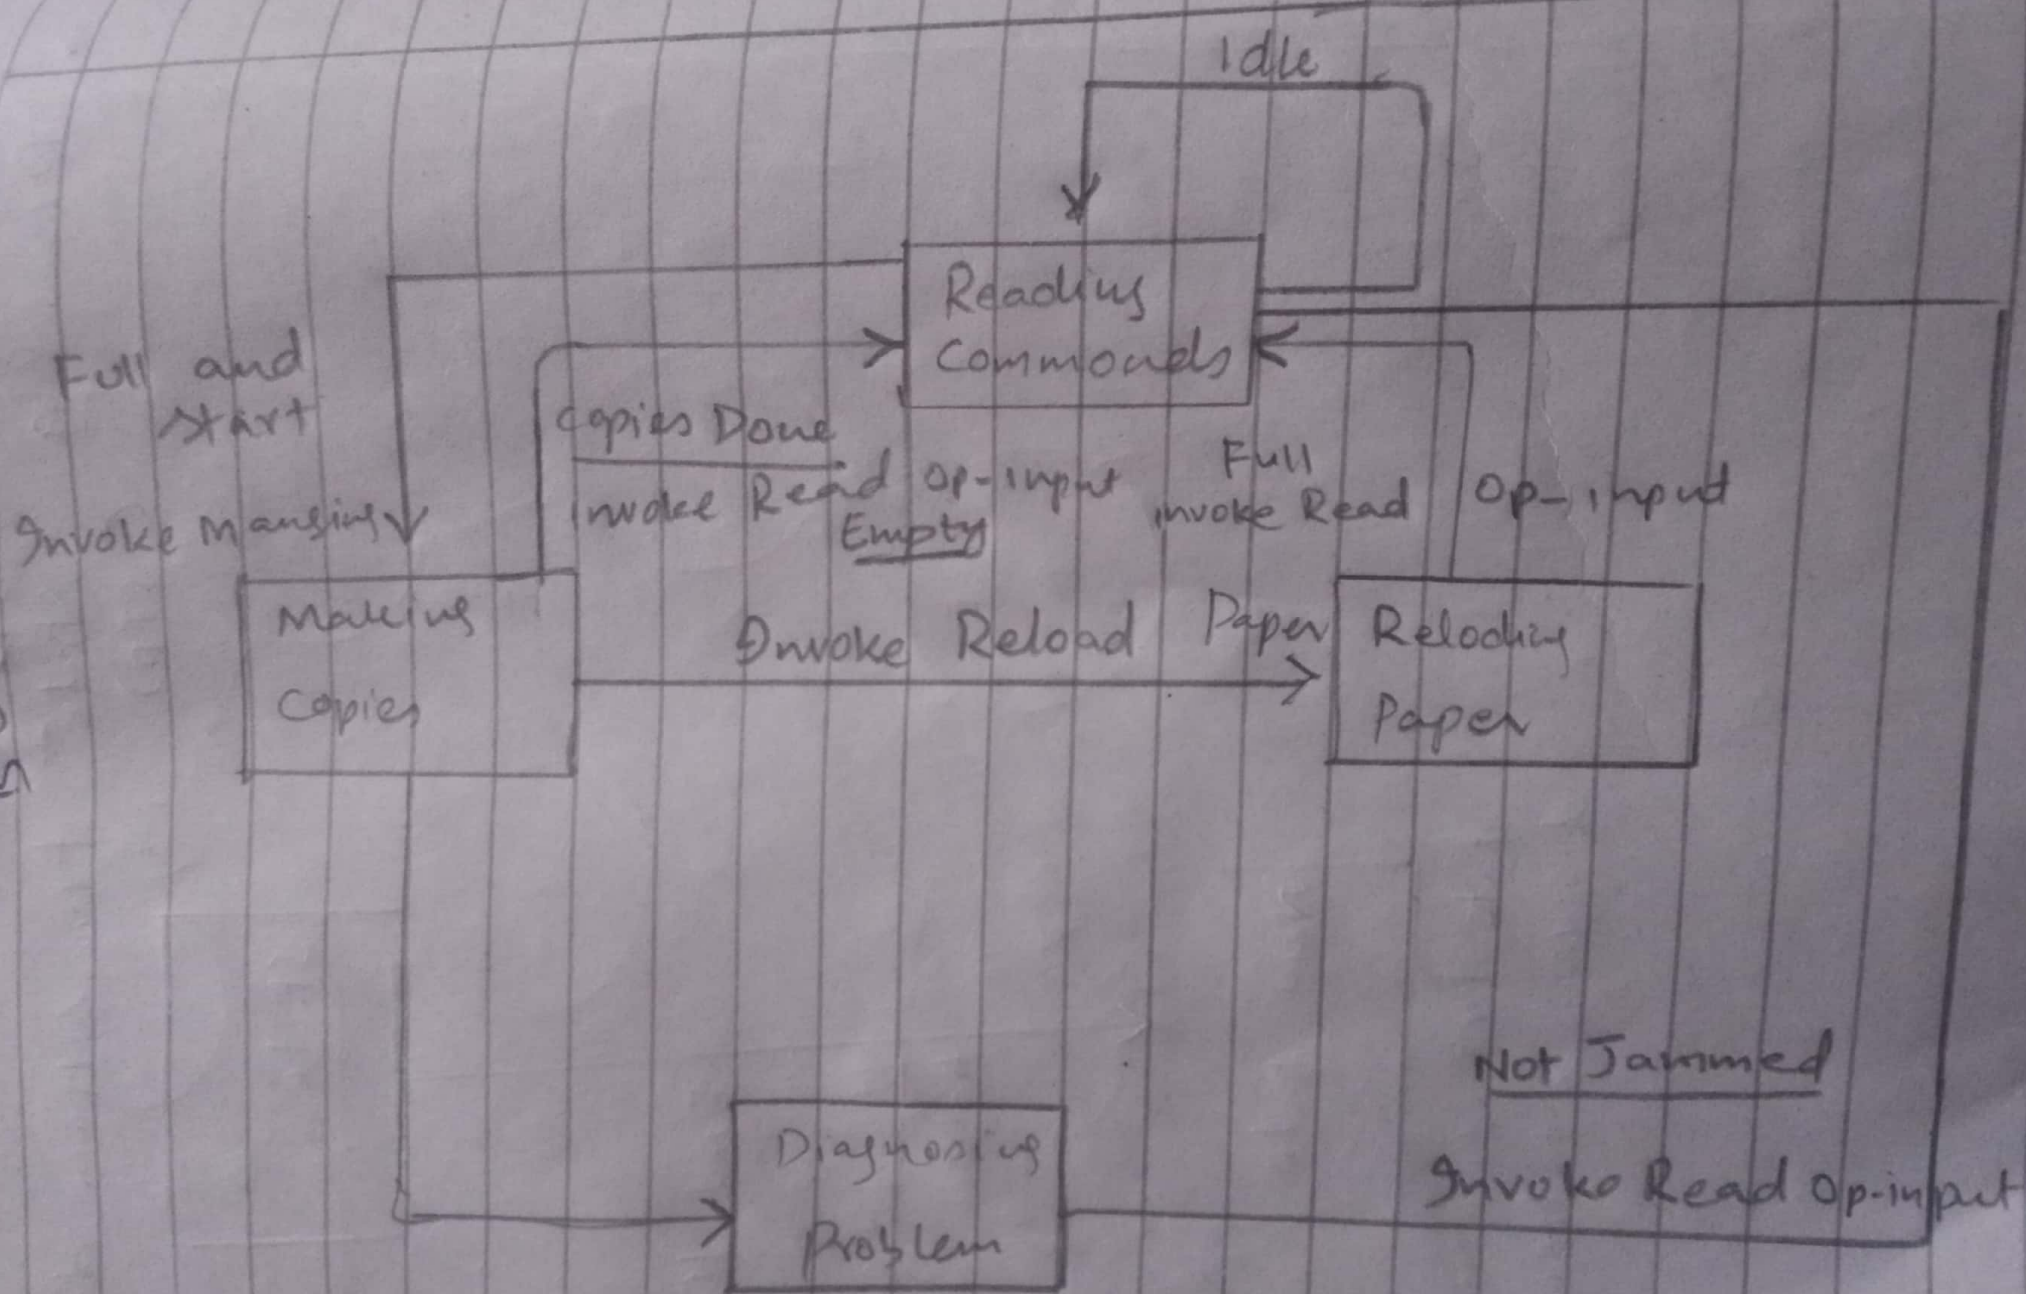 Idle
Reading
Commands
Full and
Start
Invoke Manging
Copies Done
Invoke Read Op-input
Empty
Full
invoke Read
Op-input
Making
Copies
Invoke Reload Paper
Reloding
Paper
Not Jammed
Invoke Read Op-input
Diagnosing
Problem